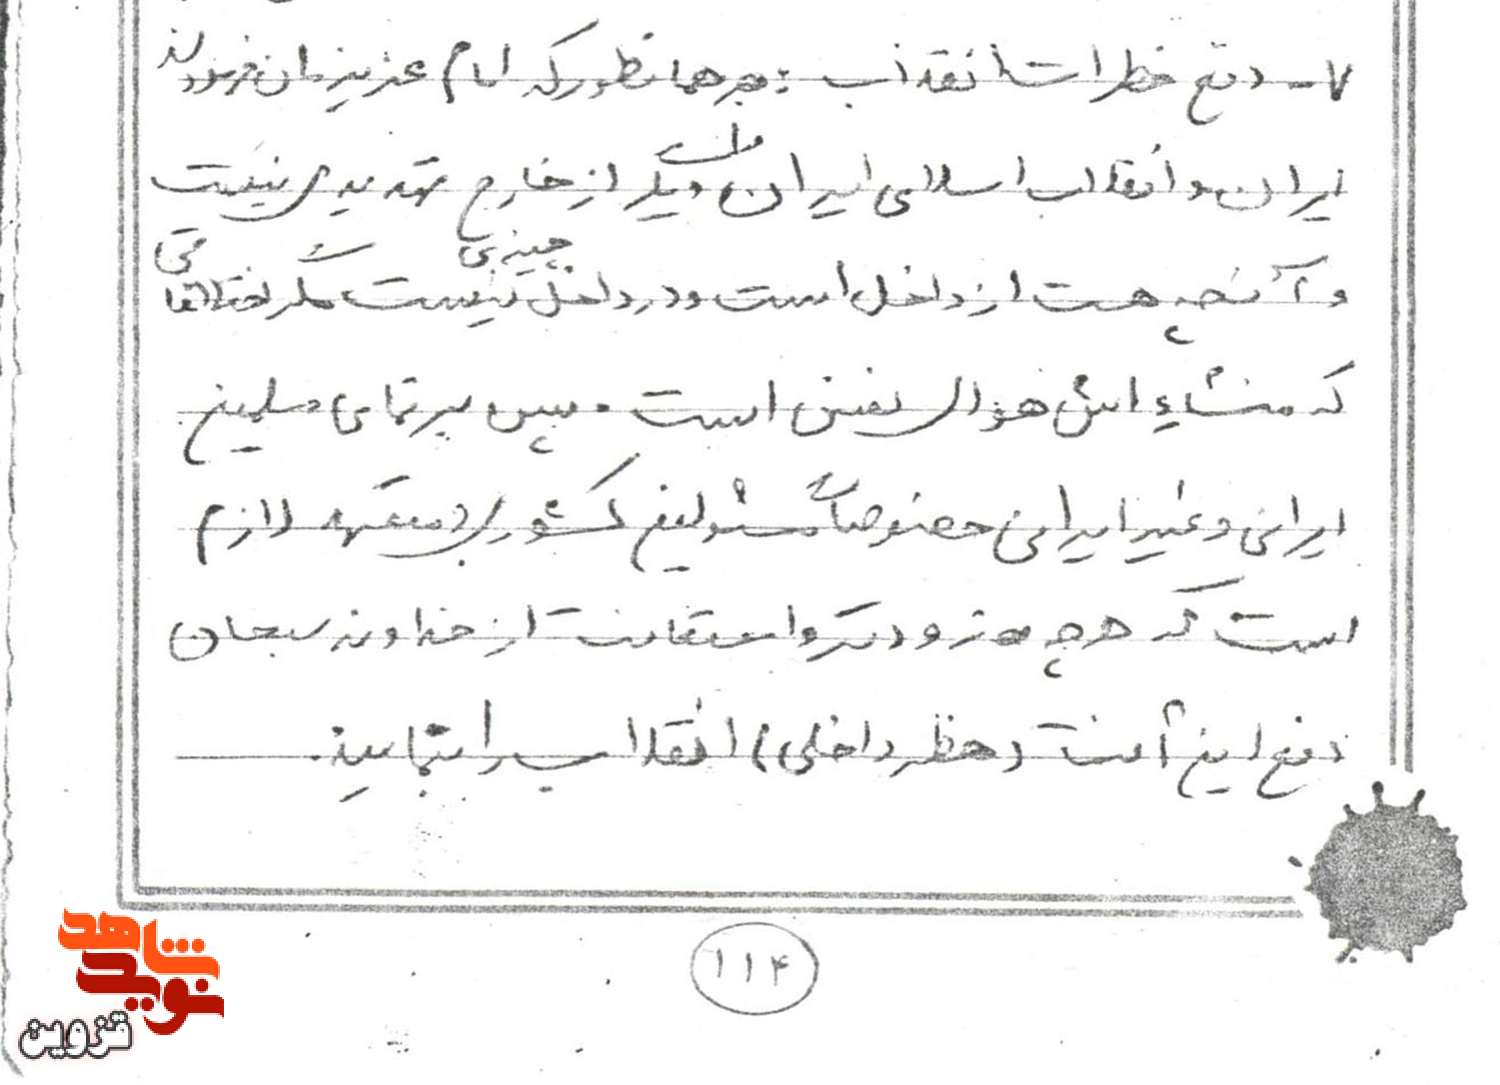 ۷- دفع خطرات انقلاب : بر همانطور که امام عزیزمان فرمودند
ایران و انقلاب اسلامی ایران دیگر از خارج تهدیدی نیست
و آنچه هست از داخل است و در داخل چیزی نیست مگر اختلافاتی
که منشاء اش هوای نفس است . پس بر تمامی مسلمین
ایرانی و غیر ایرانی خصوصاً مسئولین کشوری متعهد لازم
است که هر چه زودتر و استعانت از خداوند سبحان
دفع این آفت (خطر داخلی) انقلاب را بنمایید.
۱۱۴
نوید شاهد
قزوین